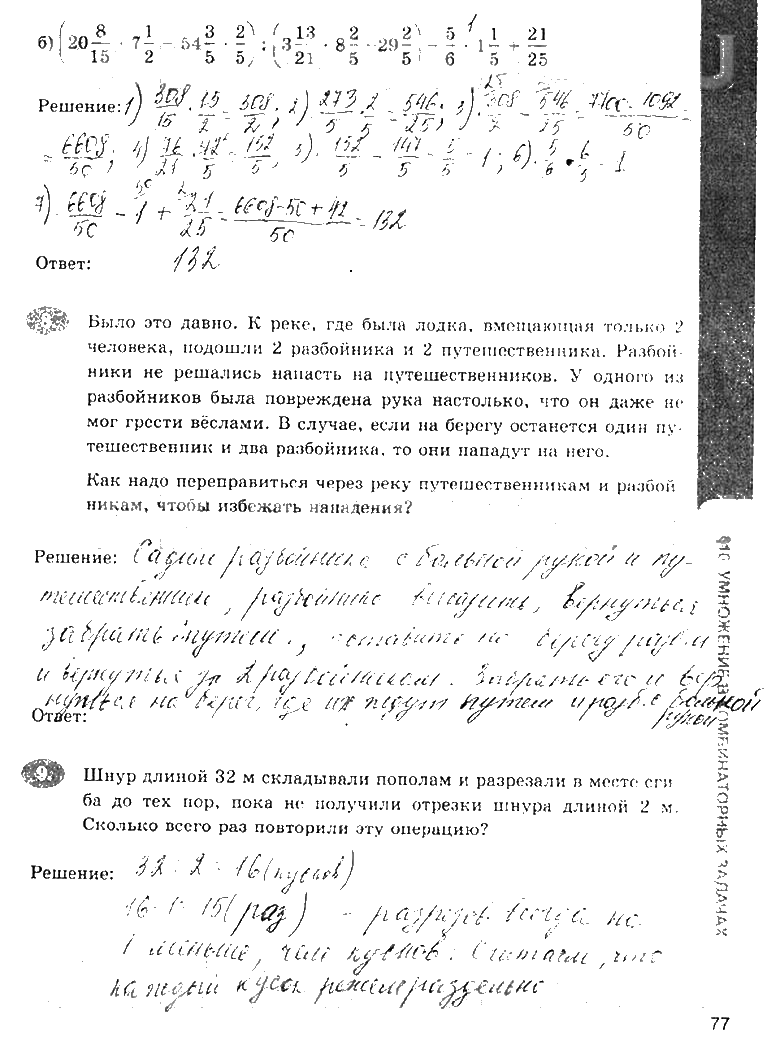 б) (20 8/15 · 7 1/2 − 54 3/5 · 2/5) : (3 13/21 · 8 2/5 − 29 2/5) − 5/6 · 1 1/5 + 21/25
Решение: 1) 308/15 · 15/2 = 308/2; 2) 273/5 · 2/5 = 546/25; 3) 308/2 − 546/25 = 7700 − 1092/50 =
= 6608/50; 4) 76/21 · 42/5 = 152/5; 5) 152/5 − 147/5 = 5/5 = 1; 6) 5/6 · 6/5 = 1
7) 6608/50 − 1 + 21/25 = 6608−50+42/50 = 132
Ответ: 132
8 Было это давно. К реке, где была лодка, вмещающая только 2
человека, подошли 2 разбойника и 2 путешественника. Разбой-
ники не решались напасть на путешественников. У одного из
разбойников была повреждена рука настолько, что он даже не
мог грести вёслами. В случае, если на берегу останется один пу-
тешественник и два разбойника, то они нападут на него.
Как надо переправиться через реку путешественникам и разбой
никам, чтобы избежать нападения?
Решение: Садим разбойника с больной рукой и пу-
тешественник, разбойника высадить, вернуться
забрать путеш., оставить на берегу
и вернуться за 2 разбойником. Забрать его и вер
нуться на берег, где их ждут путеш и разб. с больной
рукой
Ответ:
9 Шнур длиной 32 м складывали пополам и разрезали в месте сги
ба до тех пор, пока не получили отрезки шнура длиной 2 м.
Сколько всего раз повторили эту операцию?
Решение: 32 : 2 = 16 (кусков)
16 − 1 = 15 (раз) − разрезов всегда на
1 меньше, чем кусков. Считаем, что
каждый кусок режем раздельно
§16 УМНОЖЕНИЕ В КОМБИНАТОРНЫХ ЗАДАЧАХ
77